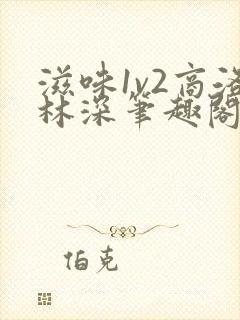 滋味1v2高洛
林深笔趣阁
伯克